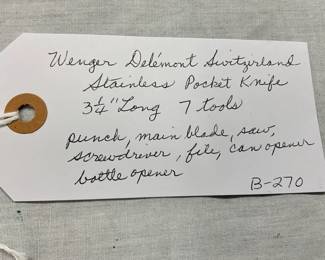 Wenger Delémont Switzerland
Stainless Pocket Knife
3 1/4" Long 7 tools
punch, main blade, saw,
screwdriver, file, can opener
bottle opener
B-270